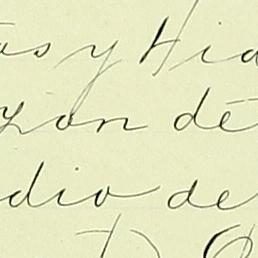 as y Hid
zon de
dio de